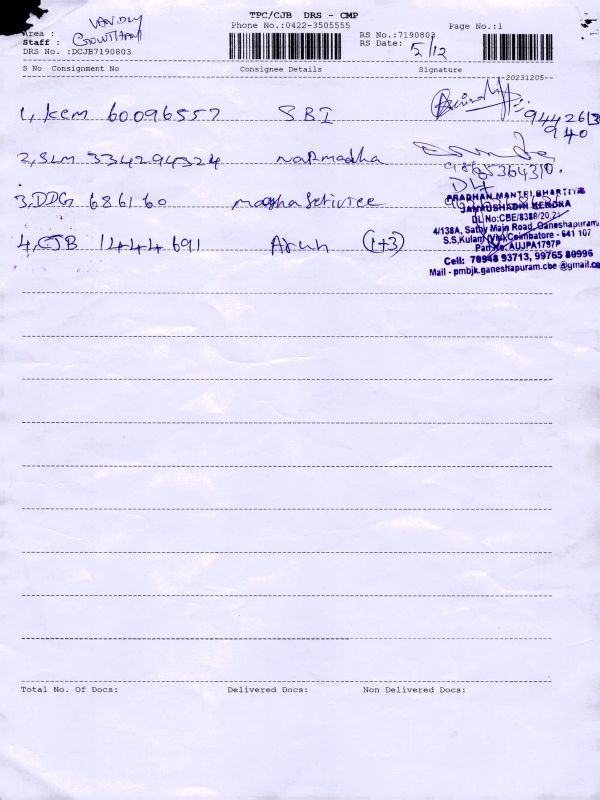 TPC/CJB DRS - CMP
Phone No.:0422-3505555
Page No.:1
Area :
Staff : GOWTHAM
DRS No. :DCJB7190803
RS No.:7190803
RS Date: 5/12
S No Consignment No Consignee Details Signature
20231205
1, KCM 60096557 SBI
9442613
940
2, SLM 3342949324 Narmadha
9865364310.
3, DDG 686160
DL4
4, CJB 1444691 Arun (1+3)
PRADHAN MANTRI BHARTIYA
JANAUSHADHI KENDRA
DL No:CBE/8388/20,21
4/138A, Sathy Main Road, Ganeshapuram,
S.S.Kulam (Via), Coimbatore - 641 107
Pan No. AUJPA1797P
Cell: 70948 93713, 99765 80996
Mail - pmbjk.ganeshapuram.cbe @gmail.co
Total No. Of Docs: Delivered Docs: Non Delivered Docs: